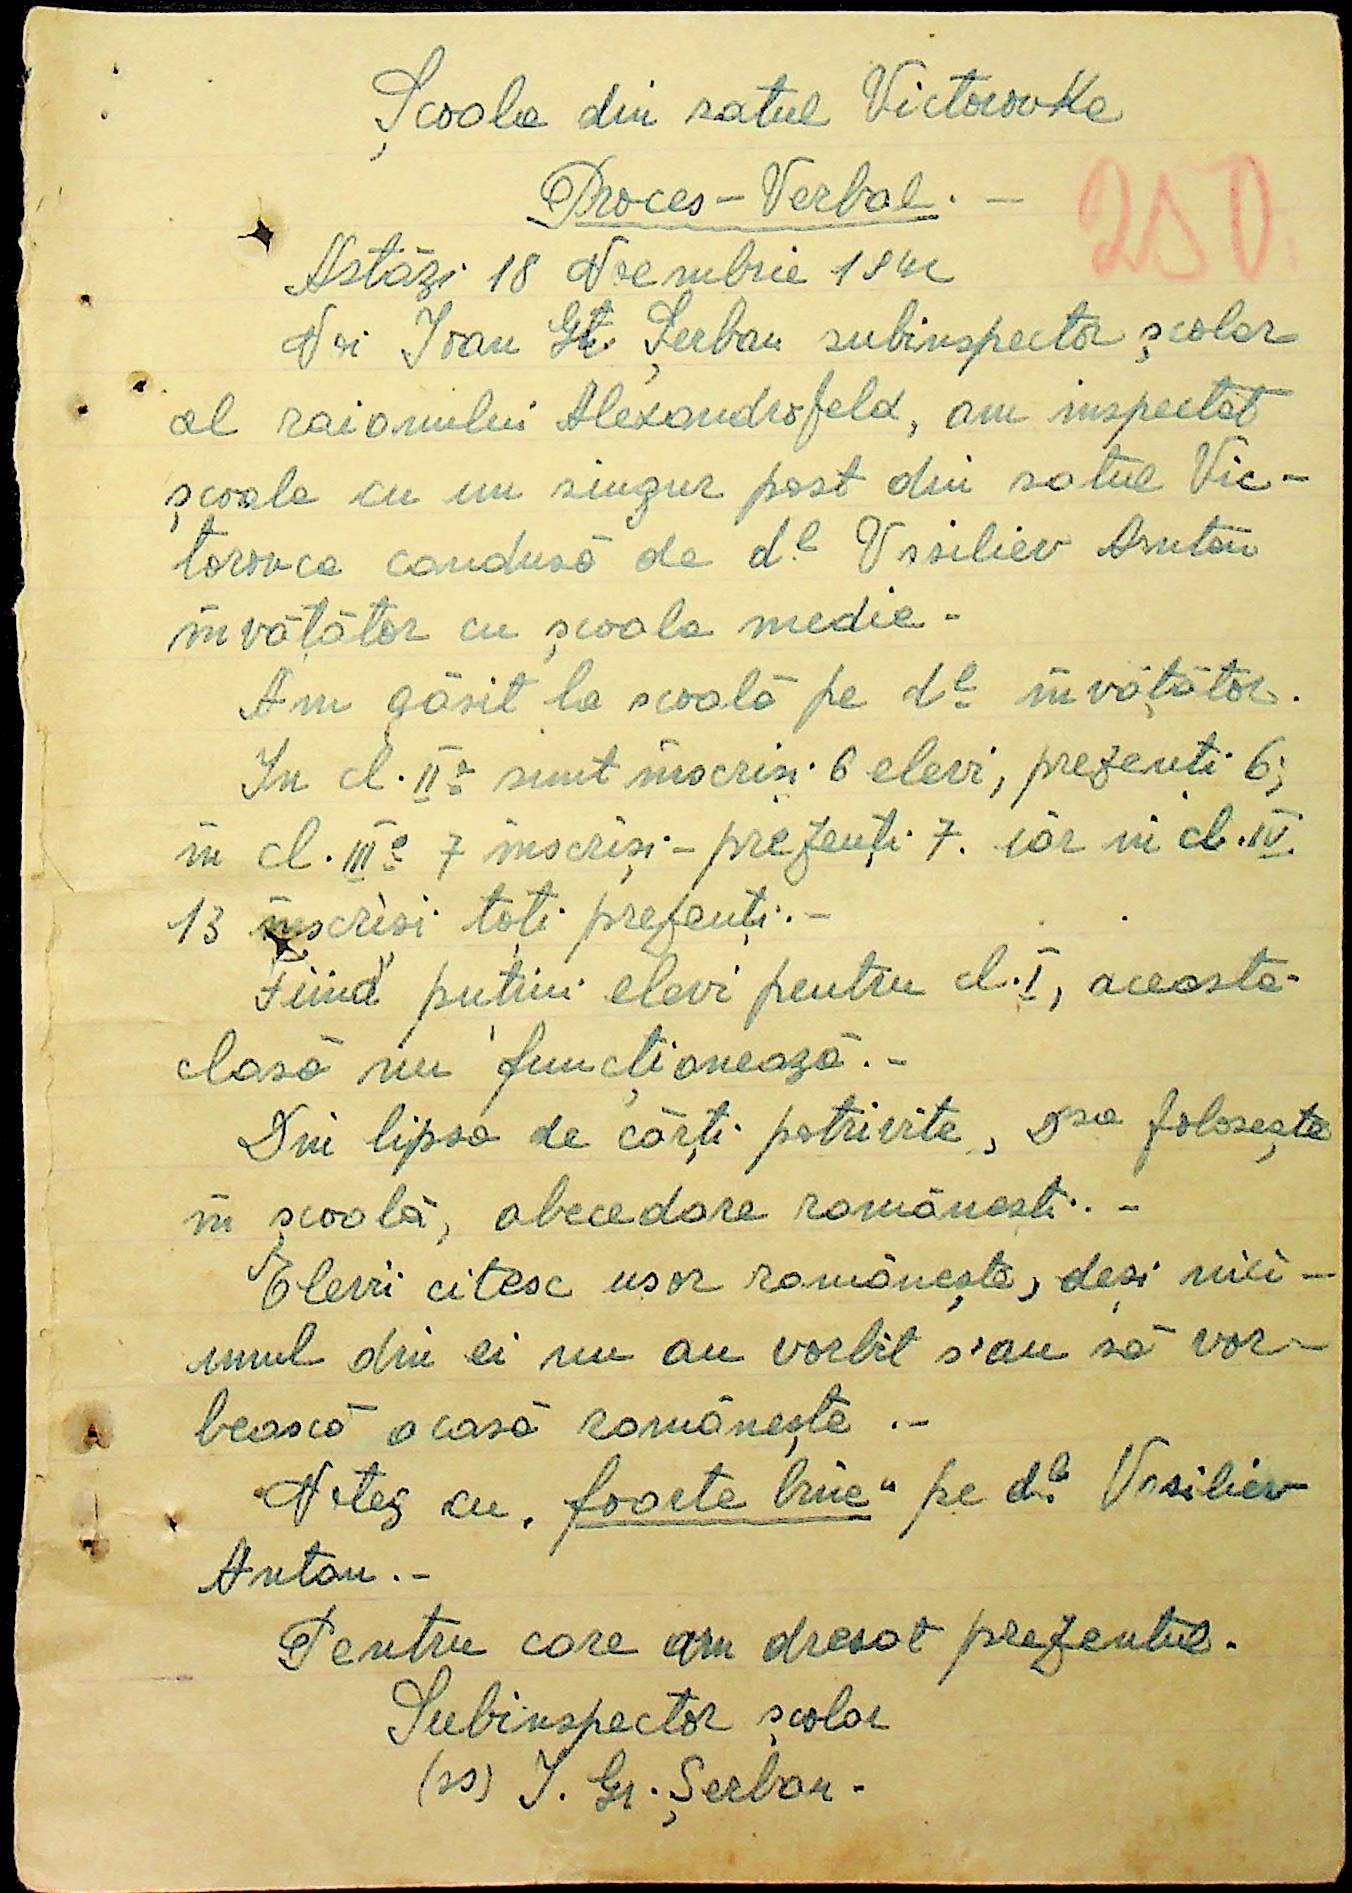 Școala din satul Victorovka
250
Proces-Verbal. -
Astăzi 18 Noembrie 1942
Noi Ioan Gr. Șerban subinspector școlar
al raionului Alexandrofeld, am inspectat
școala cu un singur post din satul Vic-
torovca condusă de d.l Vasiliev Anton
învățător cu școala medie -
Am găsit la scoală pe d.l învățător.
In cl. II-a sunt înscriși 6 elevi, prezenti 6;
în cl. III-a 7 înscriși - prezenți 7. iar în cl. IV
13 înscriși toți prezenți. -
Fiind puțini elevi pentru cl. I, aceasta
clasă nu funcționează. -
Din lipsa de cărți potrivite, Dsa folosește
în școală, abecedare românești. -
Elevii citesc usor românește, deși nici -
unul din ei nu au vorbit s'au să vor-
bească acasă românește . -
Notez cu „foarte bine" pe d.l Vasiliev
Anton. -
Pentru care am dresat prezentul.
Subinspector școlar
(ss) I. Gr. Șerban -